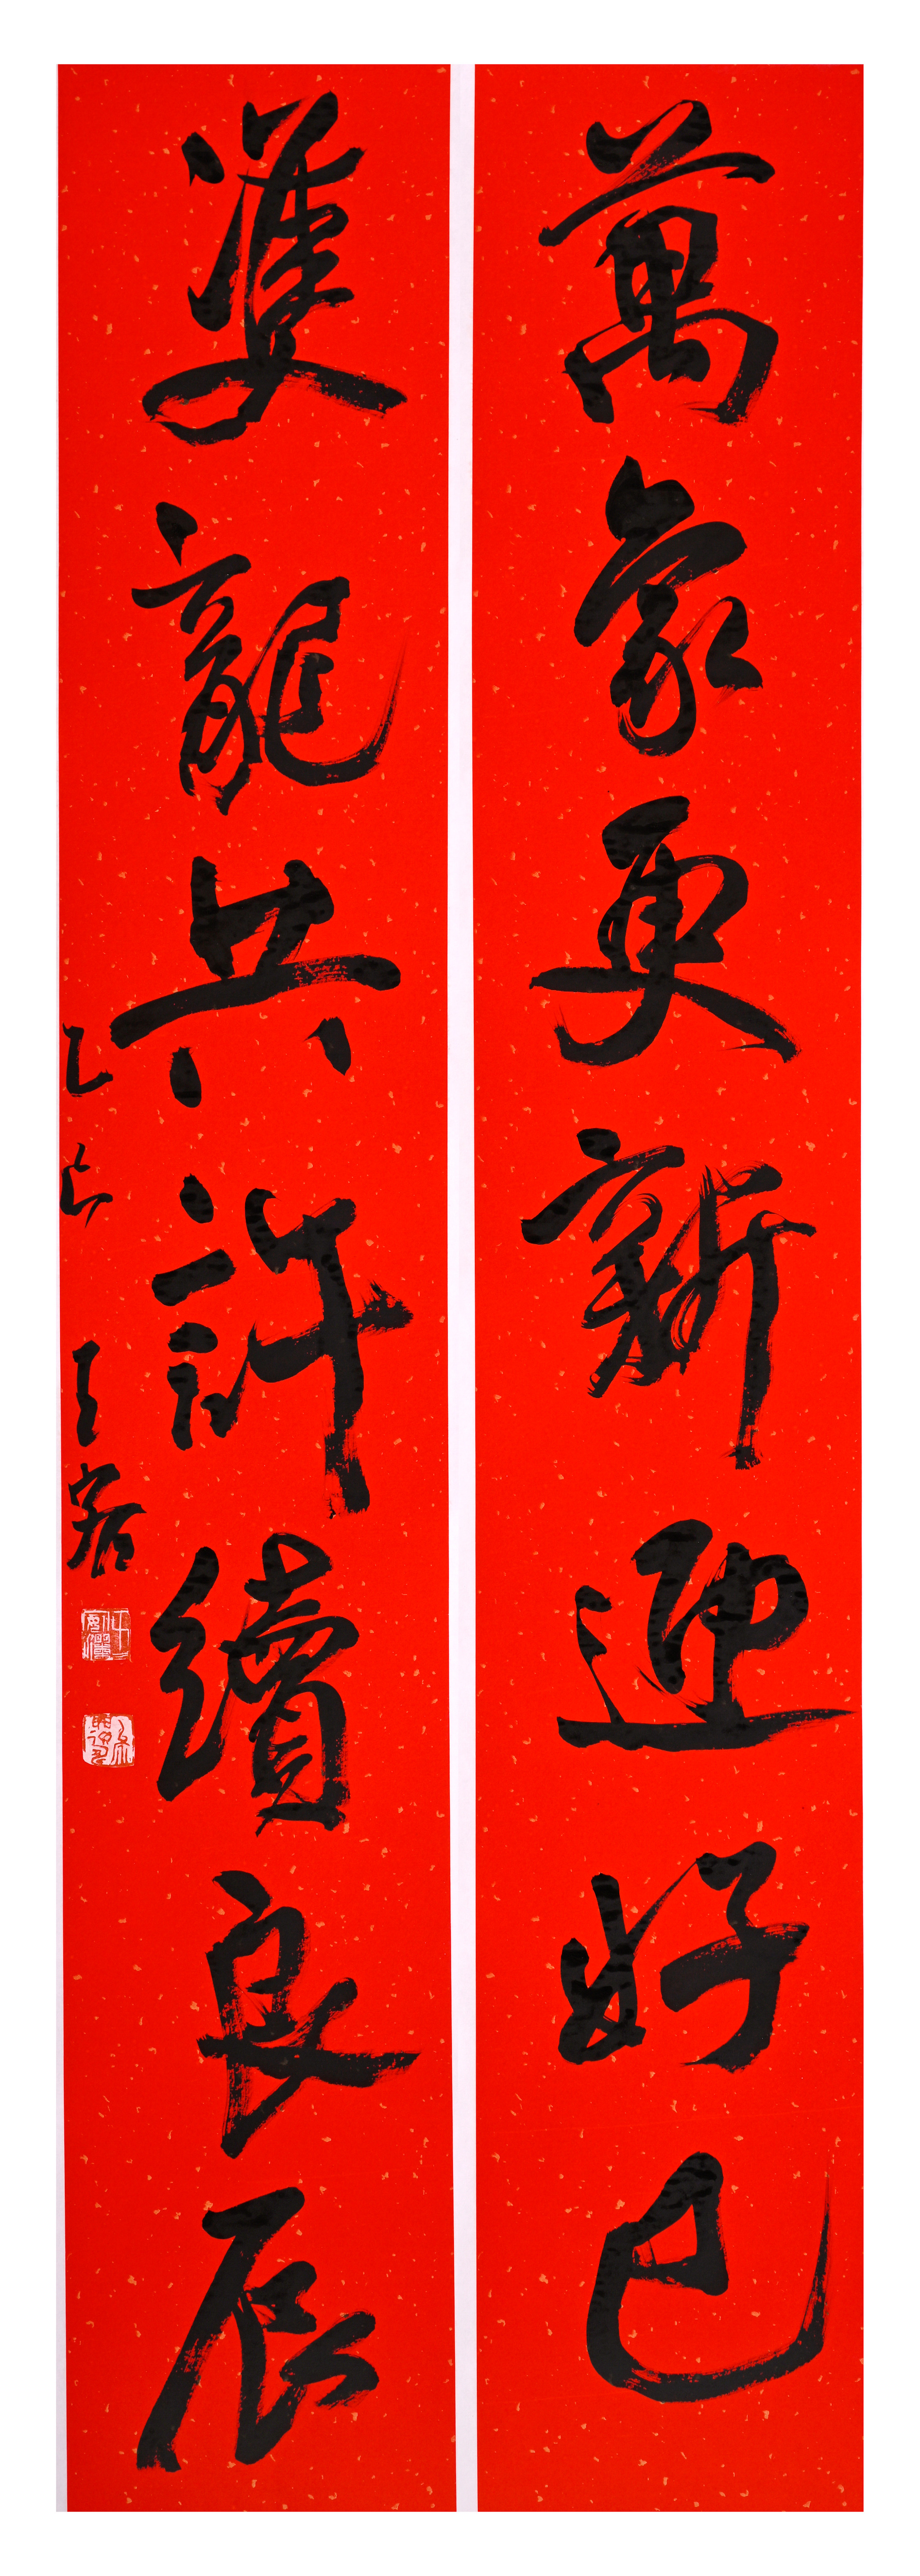 萬象更新迎好巳
雙龍共許續良辰
乙巳